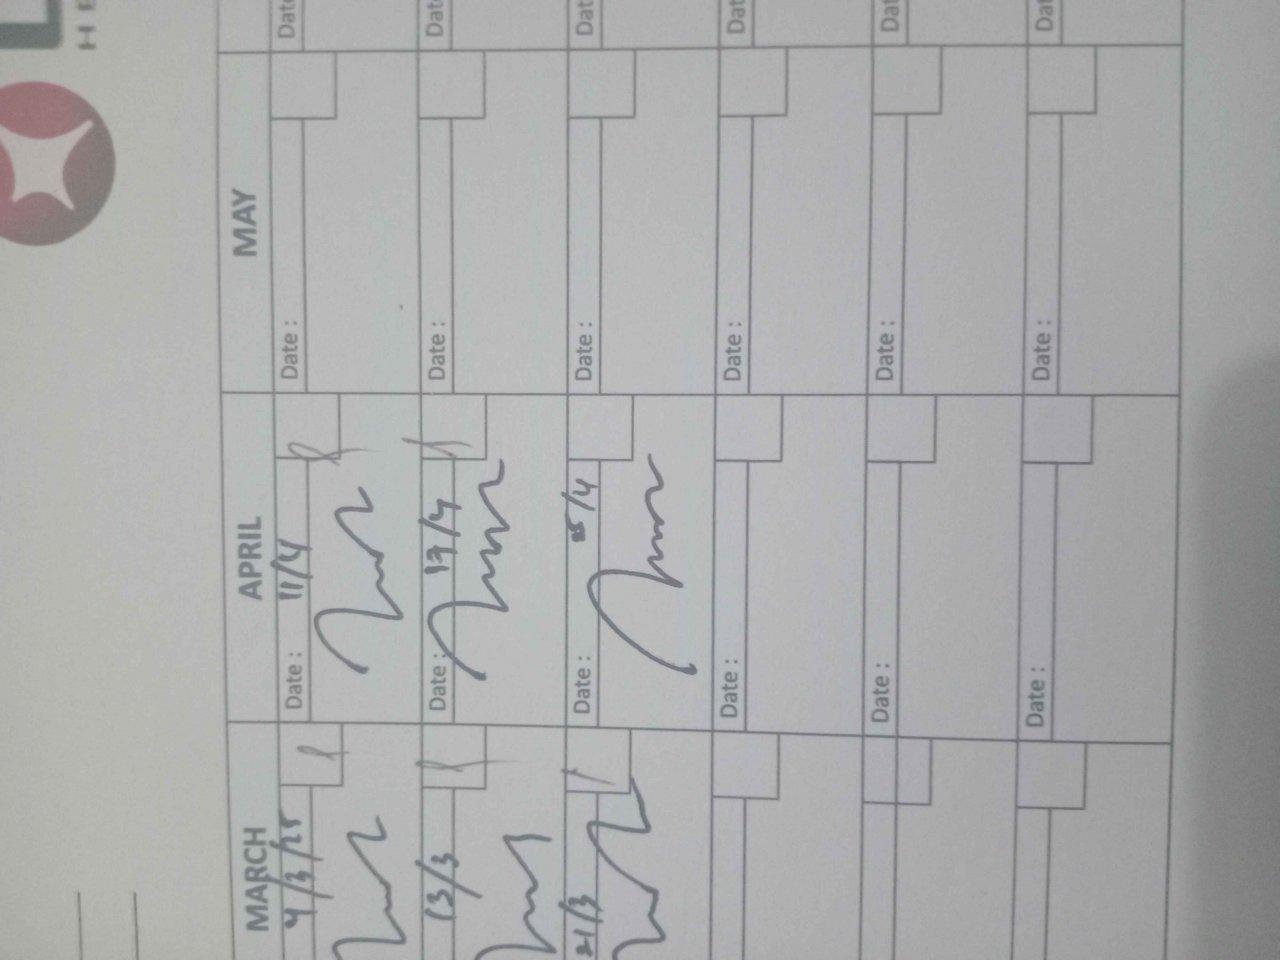 MARCH APRIL MAY
4/3/25 Date : 11/4 Date : Dat
13/3 Date : 17/4 Date : Dat
21/3 Date : 25/4 Date : Dat
Date : Date : Dat
Date : Date : Dat
Date : Date : Dat